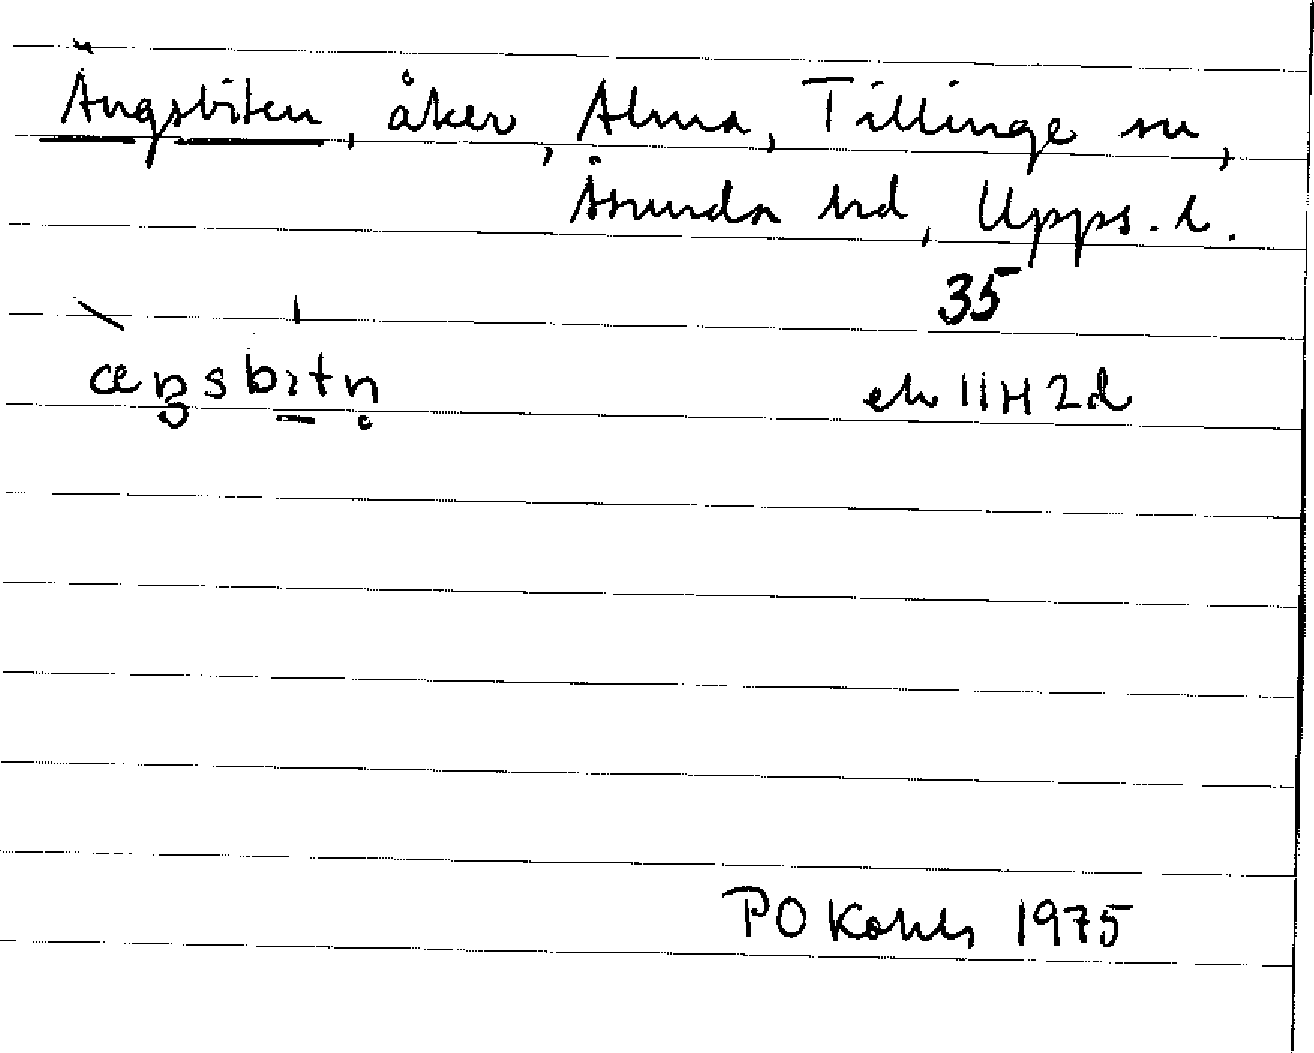 Ängsbiten, åker, Alma, Tillinge sn,
Åsunda hd, Upps. l.
35
æŋsbıtn̥
ek 11H2d
PO 1975